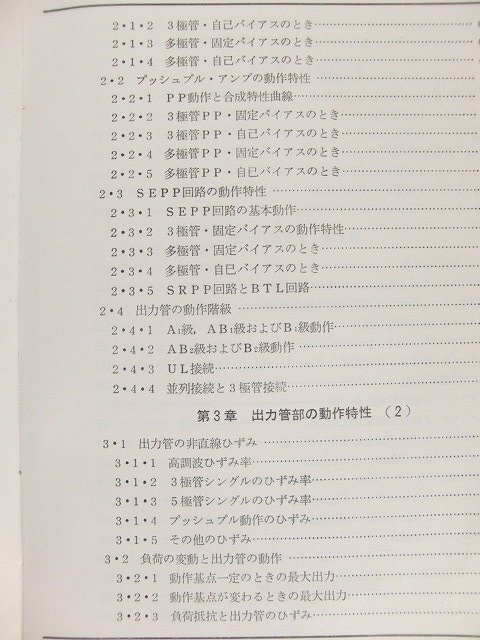 2・1・2 3極管・自己バイアスのとき
2・1・3 多極管・固定バイアスのとき
2・1・4 多極管・自己バイアスのとき
2・2 プッシュプル・アンプの動作特性
2・2・1 PP動作と合成特性曲線
2・2・2 3極管PP・固定バイアスのとき
2・2・3 3極管PP・自己バイアスのとき
2・2・4 多極管PP・固定バイアスのとき
2・2・5 多極管PP・自己バイアスのとき
2・3 SEPP回路の動作特性
2・3・1 SEPP回路の基本動作
2・3・2 3極管・固定バイアスの動作特性
2・3・3 多極管・固定バイアスのとき
2・3・4 多極管・自己バイアスのとき
2・3・5 SRPP回路とBTL回路
2・4 出力管の動作階級
2・4・1 A₁級，AB₁級およびB₁級動作
2・4・2 AB₂級およびB₂級動作
2・4・3 UL接続
2・4・4 並列接続と3極管接続
第3章 出力管部の動作特性 (2)
3・1 出力管の非直線ひずみ
3・1・1 高調波ひずみ率
3・1・2 3極管シングルのひずみ率
3・1・3 5極管シングルのひずみ率
3・1・4 プッシュプル動作のひずみ
3・1・5 その他のひずみ
3・2 負荷の変動と出力管の動作
3・2・1 動作基点一定のときの最大出力
3・2・2 動作基点が変わるときの最大出力
3・2・3 負荷抵抗と出力管のひずみ